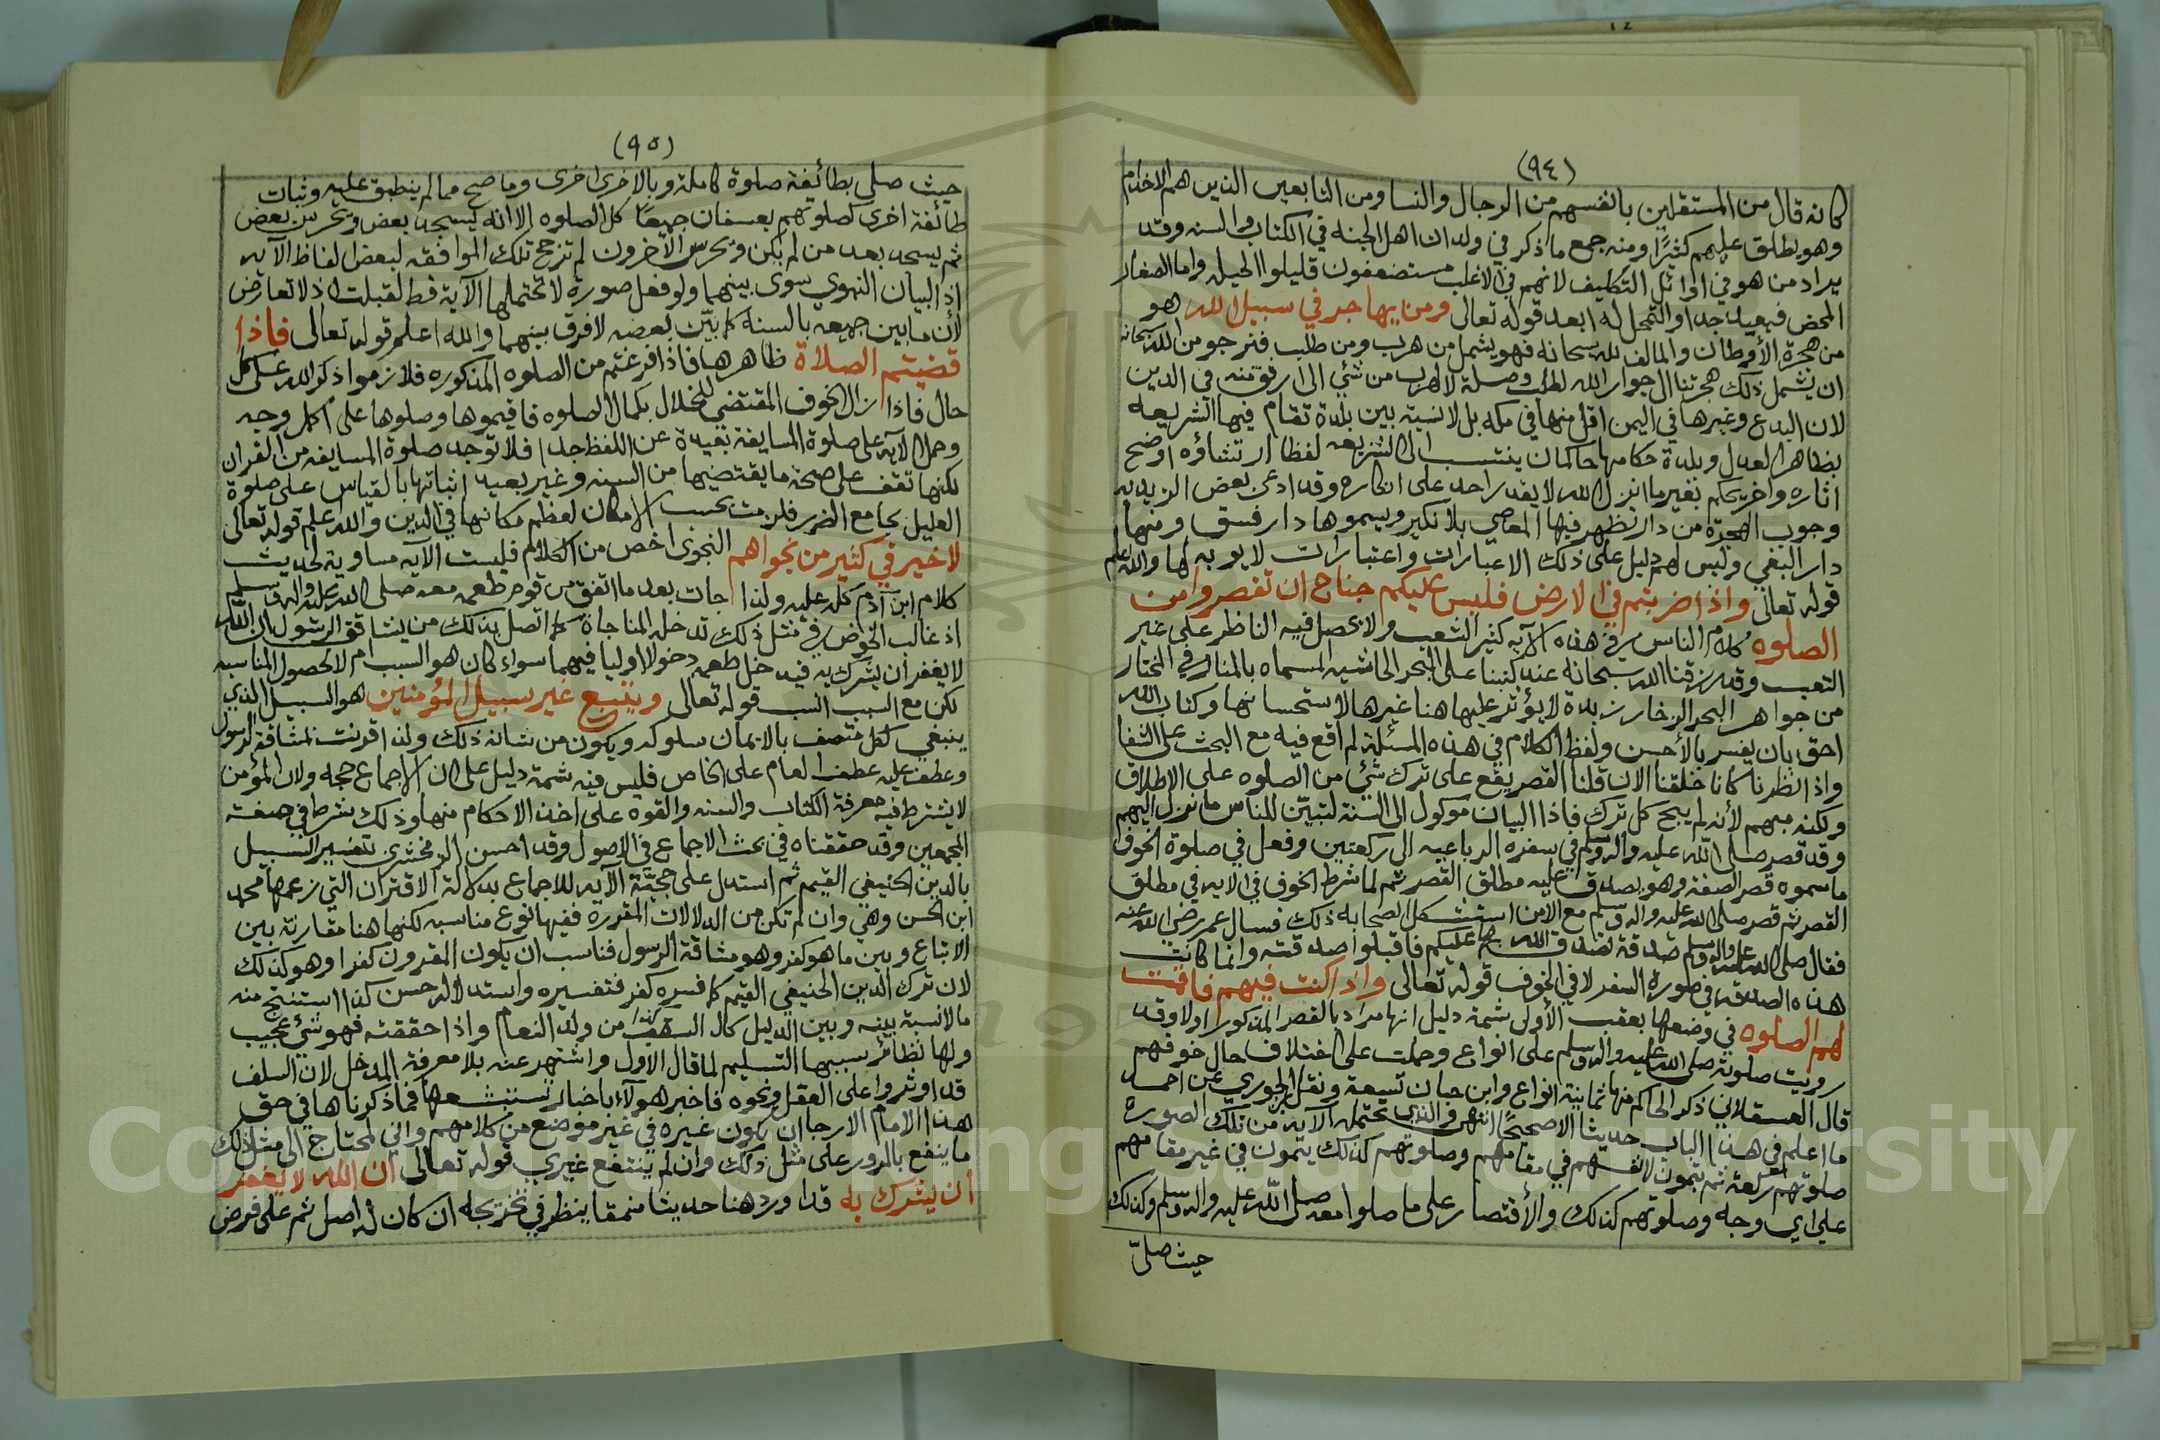 (٩٤)
كانه قال من المستقلين بانفسهم من الرجال والنسا ومن التابعين الذين هم الاخدام
وهو يطلق عليهم كثيرًا ومنه جمع ما ذكر في ولدان اهل الجنه في الكتاب والسنه وقد
يراد من هو في اوائل التكليف لانهم في الاغلب مستضعفون قليلوا الحيله واما الصغار
المحض فبعيد جدا والتمحل له ابعد قوله تعالى ومن يهاجر في سبيل الله هو
من هجرة الأوطان والمالف لله سبحانه فهو يشمل من هرب ومن طلب فنرجو من الله سبحانه
ان يشمل ذلك هجرتنا الى جوار الله لطلب وصلة لا لهرب من شئ الى ارفق منه في الدين
لان البدع وغيرها في اليمن اقل منها في مكه بل لا نسبة بين بلدة تقام فيها الشريعه
بظاهر العدل وبلدة حكامها حاكمان ينتسب الى الشريعه لفظا ارتشاؤه اوضح
اثاره واخر يحكم بغير ما انزل الله لا يقدر احد على انكاره وقد ادعى بعض الزيديه
وجوب الهجرة من دار تظهر فيها المعاصي بلا نكير ويسموها دار فسق ومنها
دار البغي وليس لهم دليل على ذلك الا عبارات واعتبارات لا يوبه لها والله اعلم
قوله تعالى واذا ضربتم في الارض فليس عليكم جناح ان تقصروا من
الصلوه كلام الناس في هذه الآيه كثير الشعب ولا يحصل فيه الناظر على غير
التعب وقد رزقنا الله سبحانه عند كتبنا على البحر الحاشيه المسماه بالمنار في المختار
من جواهر البحر الزخار زبدة لا يؤثر عليها هنا غيرها لاستحسانها وكتاب الله
احق بان يفسر بالأحسن ولفظ الكلام في هذه المسئلة لم اقع فيه مع البحث على الشفا
واذا نظرنا كانا خلقنا الان قلنا القصر يقع على ترك شئ من الصلوه على الاطلاق
ولكنه مبهم لأنه لم يبح كل ترك فاذا البيان موكول الى السنة لتبيّن للناس ما نزل اليهم
وقد قصر صلى الله عليه واله وسلم في سفره الرباعيه الى ركعتين وفعل في صلوة الخوف
ما سموه قصر الصفة وهو يصدق عليه مطلق القصر ثم لما شرط الخوف في الايه في مطلق
القصر ثم قصر صلى الله عليه واله وسلم مع الأمن استشكل الصحابه ذلك فسال عمر رضي الله عنه
فقال صلى الله عليه واله وسلم صدقة تصدق الله بها عليكم فاقبلوا صدقته وانما كانت
هذه الصدقه في صورة السفر لا في الخوف قوله تعالى واذا كنت فيهم فاقمت
لهم الصلوه في وضعها بعقب الأولى شمة دليل انها مراد بالقصر المذكور اولا وقد
رويت صلوته صلى الله عليه واله وسلم على انواع وحملت على اختلاف حال خوفهم
قال العسقلاني ذكر الحاكم منها ثمانية انواع وابن حبان تسعة ونقل ابن الجوزي عن احمد
ما اعلم في هذا الباب حديثا الا صحيحًا انتهى والذي تحتمله الآيه من تلك الصورة
صلوتهم ركعة ثم يتمون لانفسهم في مقامهم وصلوتهم كذلك يتمون في غير مقامهم
على اي وجه وصلوتهم كذلك والأقتصار على ما صلوا معه صلى الله عليه واله وسلم وكذلك
حيث صلىّ
(٩٥)
حيث صلى بطائفة صلوة كاملة وبالاخرى اخرى وما صح مما لم ينطبق عليه وثبات
طائفة اخرى كصلوتهم بعسفان جميعًا كل الصلوه الا انه يسجد بعض ويحرس بعض
ثم يسجد بعد من لم يكن ويحرس الآخرون لم ترجح تلك الموافقه لبعض لفاظ الآيه
اذ البيان النبوي سوى بينهما ولو فعل صورة لا تحتملها الآية قط لقبلت اذ لا تعارض
لأن ما بين جميعه بالسنه كما بيّن بعضه لا فرق بينهما والله اعلم قوله تعالى فاذا
قضيتم الصلاة ظاهرها فاذا فرغتم من الصلوه المذكوره فلازموا ذكر الله على كل
حال فاذا زال الخوف المقتضي للخلال بكمال الصلوه فاقيموها وصلوها على اكمل وجه
وحمل الآيه على صلوة المسايفة بعيدة عن اللفظ جدا فلا توجد صلوة المسايفه من القران
لكنها تقف على صحة ما يقتضيها من السنه وغير بعيد اثباتها بالقياس على صلوة
العليل بجامع الضرر فلزمت بحسب الامكان لعظم مكانها في الدين والله اعلم قوله تعالى
لا خير في كثير من نجواهم النجوى اخص من الكلام فليست الآيه مساوية لحديث
كلام ابن آدم كله عليه ولذا جات بعد ما اتفق من قوم طعمه معه صلى الله عليه واله وسلم
اذ غالب الخوض في مثل ذلك تدخله المناجاة كما اتصل بذلك من يشاقق الرسول ان الله
لا يغفر أن يشرك به فيدخل طعمه دخولا اوليا فيهما سواء كان هو السبب ام لا لحصول المناسبه
لكن مع السبب انسب قوله تعالى ويتبع غير سبيل المؤمنين هو السبيل الذي
ينبغي لكل متصف بالايمان سلوكه ويكون من شانه ذلك ولذا قرنت لمشاققة الرسول
وعطف عليه عطف العام على الخاص فليس فيه شمة دليل على ان الاجماع حجه ولان المؤمن
لا يشترط فيه معرفة الكتاب والسنه والقوه على اخذ الاحكام منها وذلك شرط في صفة
المجمعين وقد حققناه في بحث الاجماع في الاصول وقد احسن الزمخشري تفسير السبيل
بالدين الحنيفي القيم ثم استدل على حجيّة الآيه للاجماع بدلالة الاقتران التي زعمها محمد
ابن الحسن وهي وان لم تكن من الدلالات المقرره ففيها نوع مناسبه لكنها هنا مقارنة بين
الاتباع وبين ما هو كفر وهو مشاقة الرسول فناسب ان يكون المقرون كفرا وهو كذلك
لان ترك الدين الحنيفي القيم كما فسره كفر فتفسيره واستدلاله حسن كذا استنتج منه
ما لا نسبة بينه وبين الدليل كمال السقف من ولد النعام واذا حققته فهو شئ عجيب
ولها نظائر سببها التسليم لما قال الاول واشتهر عنه بلا معرفة المدخل لان السلف
قد اوثروا على العقل ونحوه فاخبر هولآء باخبار تستبشعها فما ذكرناها في حق
هذا الامام الا رجا ان يكون عبره في غير موضع من كلامهم واني لمحتاج الى مثل ذلك
ما ينفع بالمرور على مثل ذلك وان لم ينتفع غيري قوله تعالى ان الله لا يغفر
أن يشرك به قد اورد هنا حديثا منمقا ينظر في تخريجه ان كان له اصل ثم على فرض